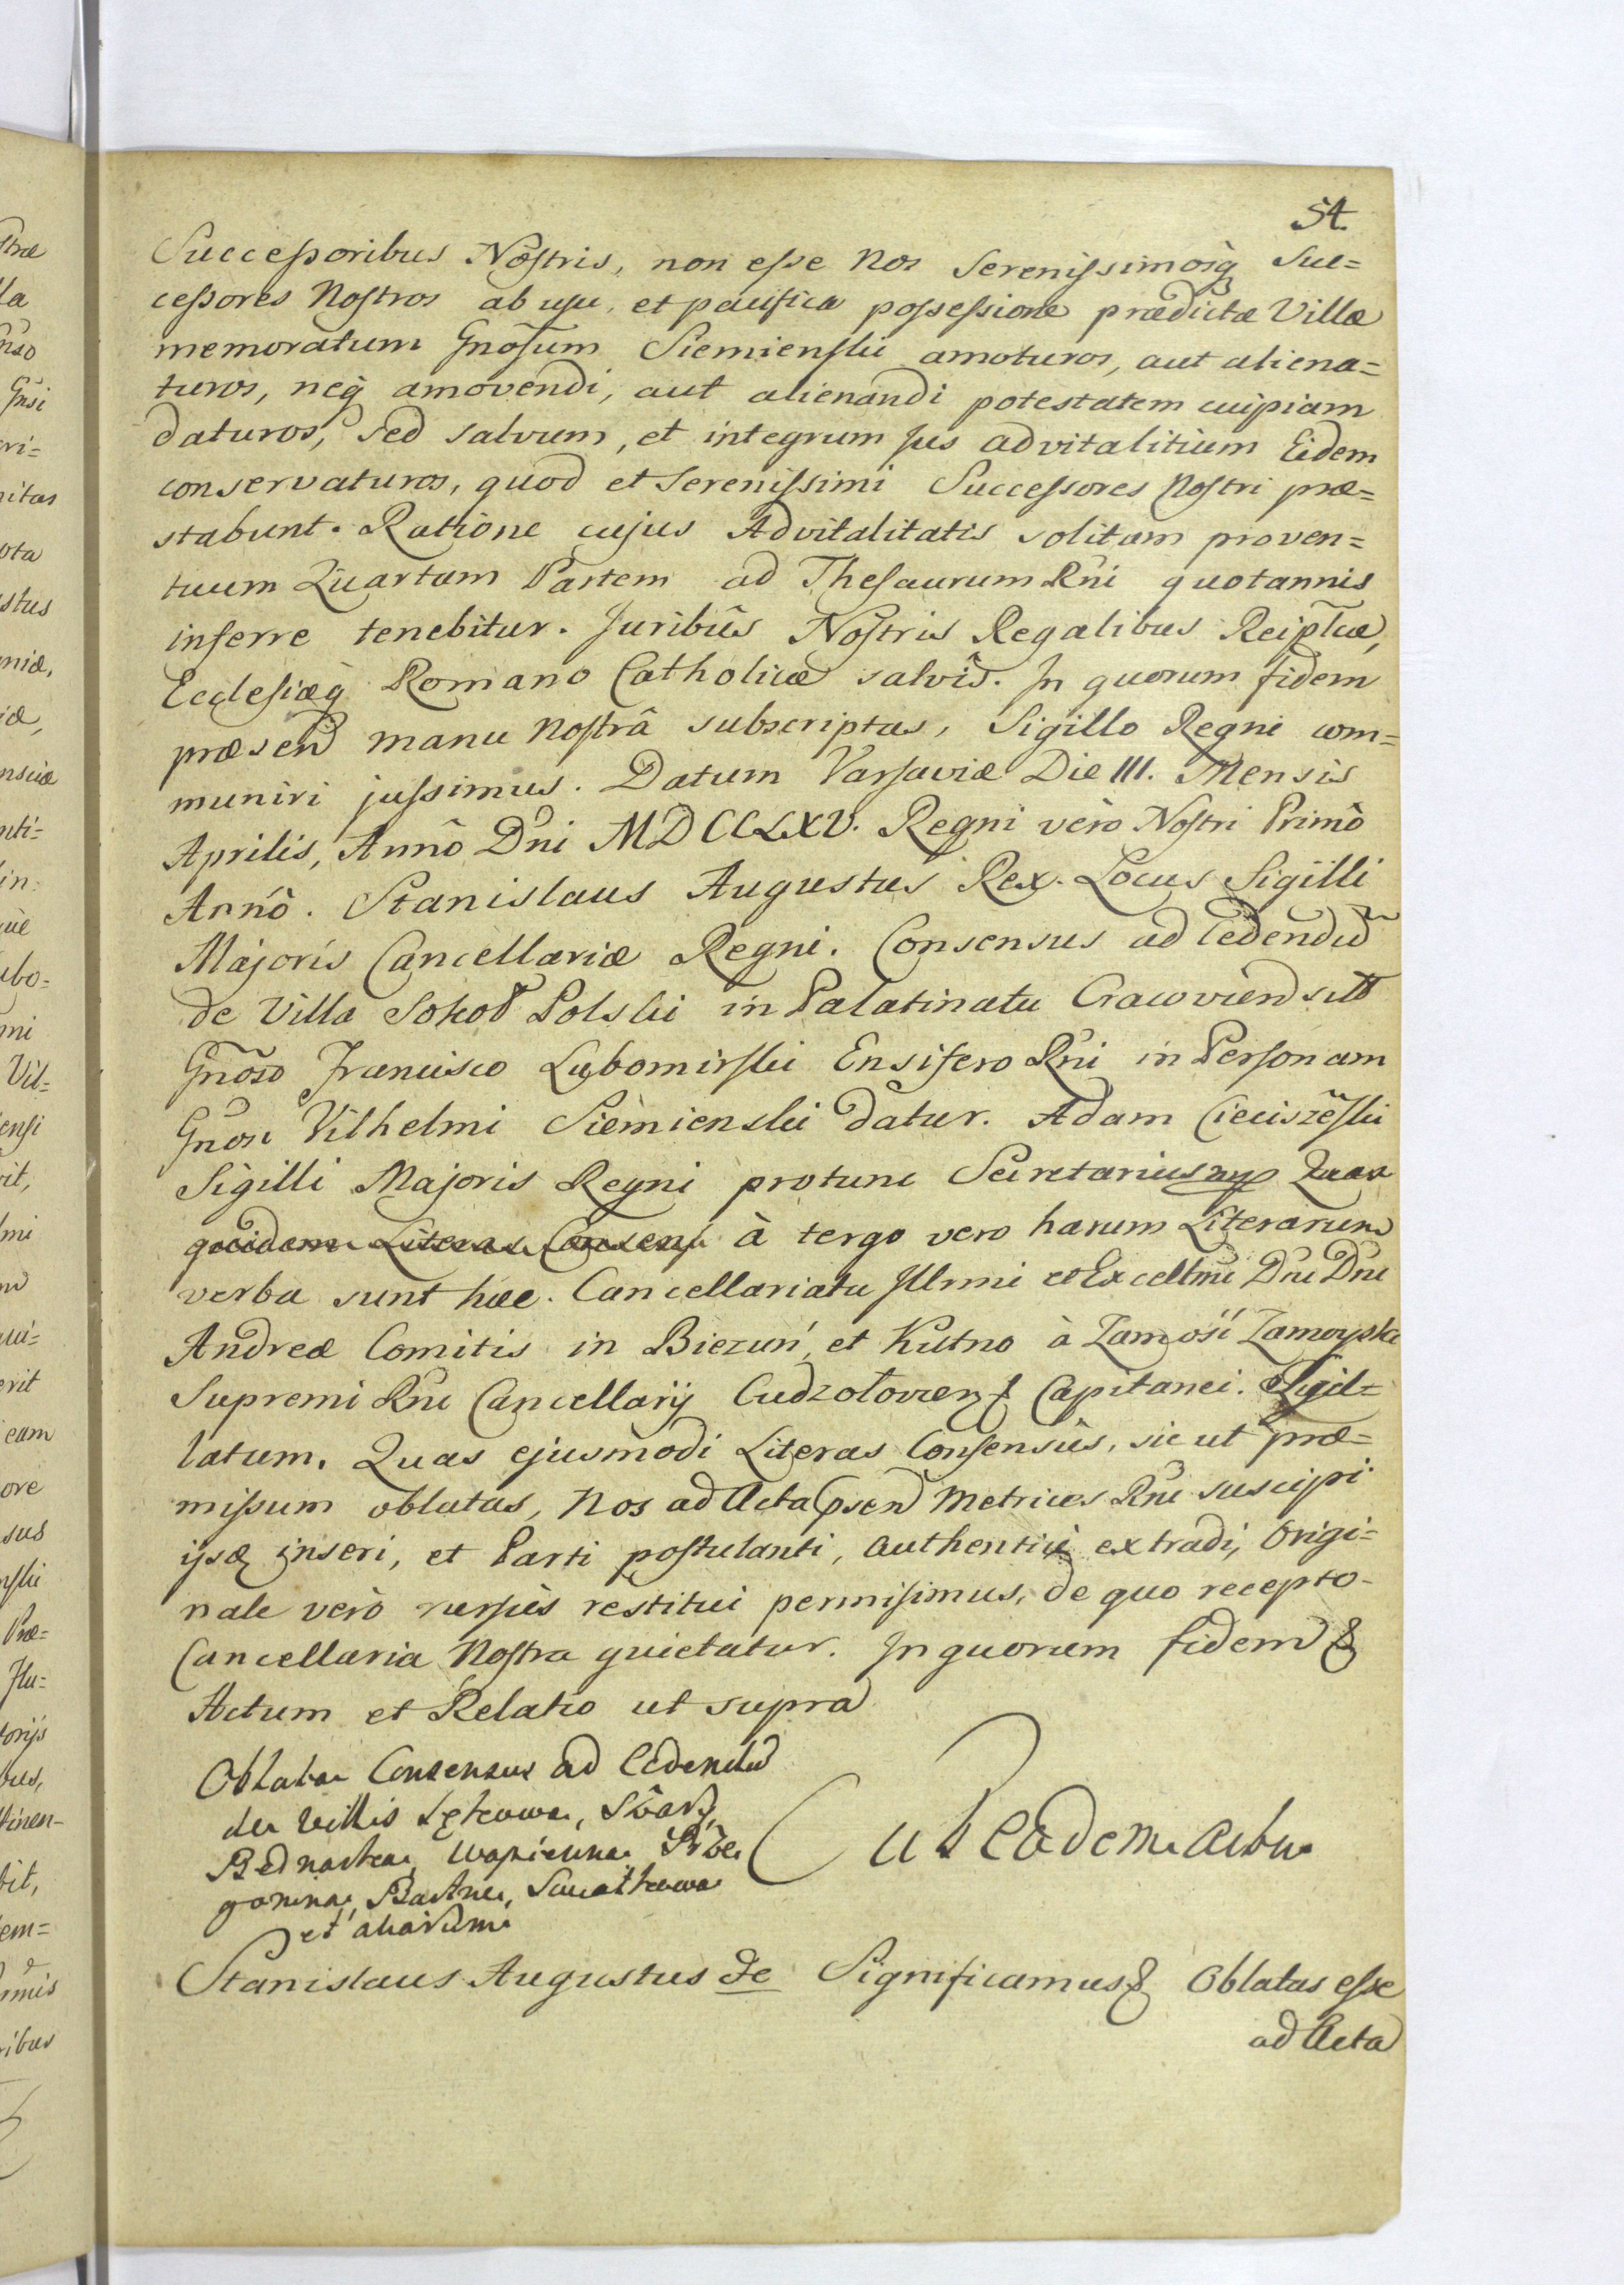 54.
Successoribus Nostris, non esse Nos Serenissimosq Suc=
cessores Nostros ab usu, et pacifica possessione prædictæ Villæ
memoratum Gnosum Siemienski amoturos, aut aliena=
turos, neq amovendi, aut alienandi potestatem cuipiam
daturos, sed salvum, et integrum Jus advitalitium Eidem
conservaturos, quod et Serenissimi Successores Nostri præ=
stabunt. Ratione cujus Advitalitatis solitam proven=
tuum Quartam Partem ad Thesaurum Rni quotannis
inferre tenebitur. Juribûs Nostris Regalibus Reiplcæ,
Ecclesiæq Romano Catholicæ salvîs. In quorum fidem
præsen manu Nostrâ subscriptas, Sigillo Regni com=
muniri jussimus. Datum Varsaviæ Die III. Mensis
Aprilis, Annô Dni MDCCLXV. Regni vèrò Nostri Primô
Annô. Stanislaus Augustus Rex. Locus Sigilli
Majoris Cancellariæ Regni. Consensus ad cedendū
de Villa Sokoł Polski in Palatinatu Cracovien sitt
Gnoso Francisco Lubomirski Ensifero Rni in Personam
Gnosi Vilhelmi Siemienski datur. Adam Cieciszeski
Sigilli Majoris Regni protunc Secretarius mp Quas
quidem Literas Consens à tergo vero harum Literarum
verba sunt hæc. Cancellariatu Illmi et Excellmi Dni Dni
Andreæ Comitis in Biezuń, et Kutno à Zamość Zamoyski
Supremi Rni Cancellarij Capitanei. Sigil=
latum. Quas ejusmodi Literas Consensûs, sic ut præ=
missum oblatas, Nos ad Acta psen Metrices Rni suscipi
ijsq inseri, et Parti postulanti, authenticè extradi, Origi=
nale verò rursùs restitui permisimus, de quo recepto
Cancellaria Nostra quietatur. In quorum fidem &
Actum et Relatio ut supra
Oblata Consensus ad Cedendū
de Villis Lękawa,
Bednarka, Wapienna
et aliarum
eadem Actu
Stanislaus Augustus &c Significamus & Oblatas esse
ad Acta